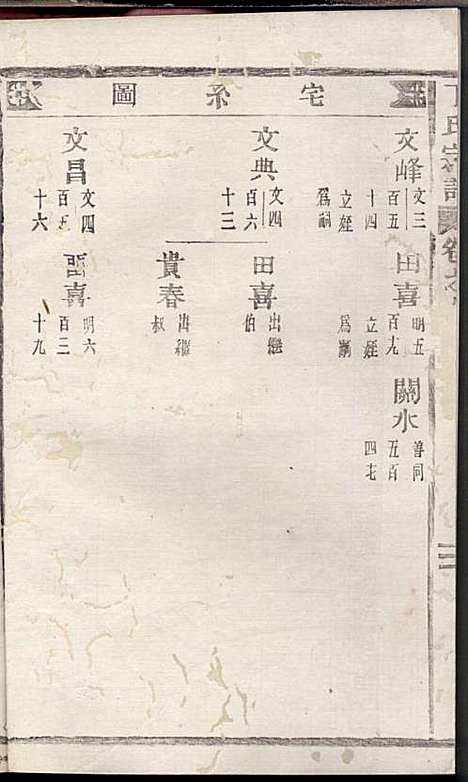 宅系圖
丁氏宗譜
文峰
文三
百五
十四
立姪
爲嗣
田喜
明五
百九
立姪
爲嗣
關水
善同
五百
四七
文典
文四
百六
十三
田喜
出繼
伯
貴春
出繼
叔
文昌
文四
百五
十六
喜
明六
百三
十九